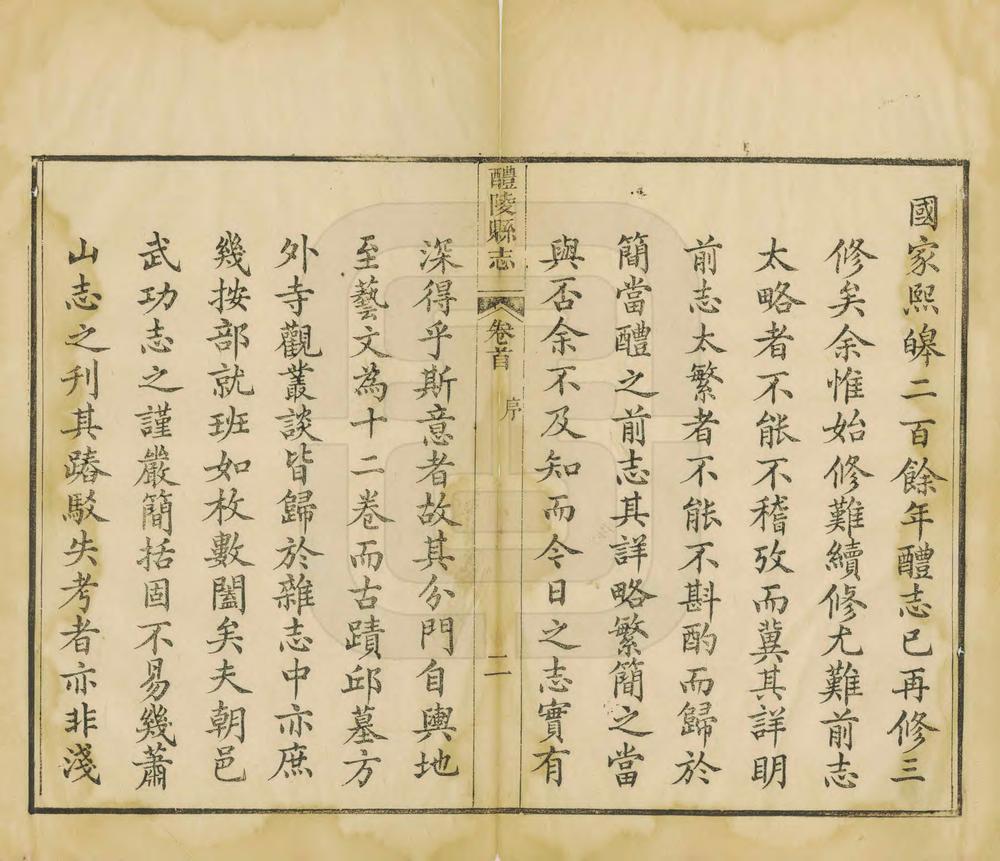 國家熙皞二百餘年醴志已再修三
修矣余惟始修難續修尤難前志
太略者不能不稽攷而冀其詳明
前志太繁者不能不斟酌而歸於
簡當醴之前志其詳略繁簡之當
與否余不及知而今日之志實有
醴陵縣志
卷首
序
二
深得乎斯意者故其分門自輿地
至藝文為十二卷而古蹟邱墓方
外寺觀叢談皆歸於雜志中亦庶
幾按部就班如枚數闔矣夫朝邑
武功志之謹嚴簡括固不易幾蕭
山志之刋其踳駁失考者亦非淺